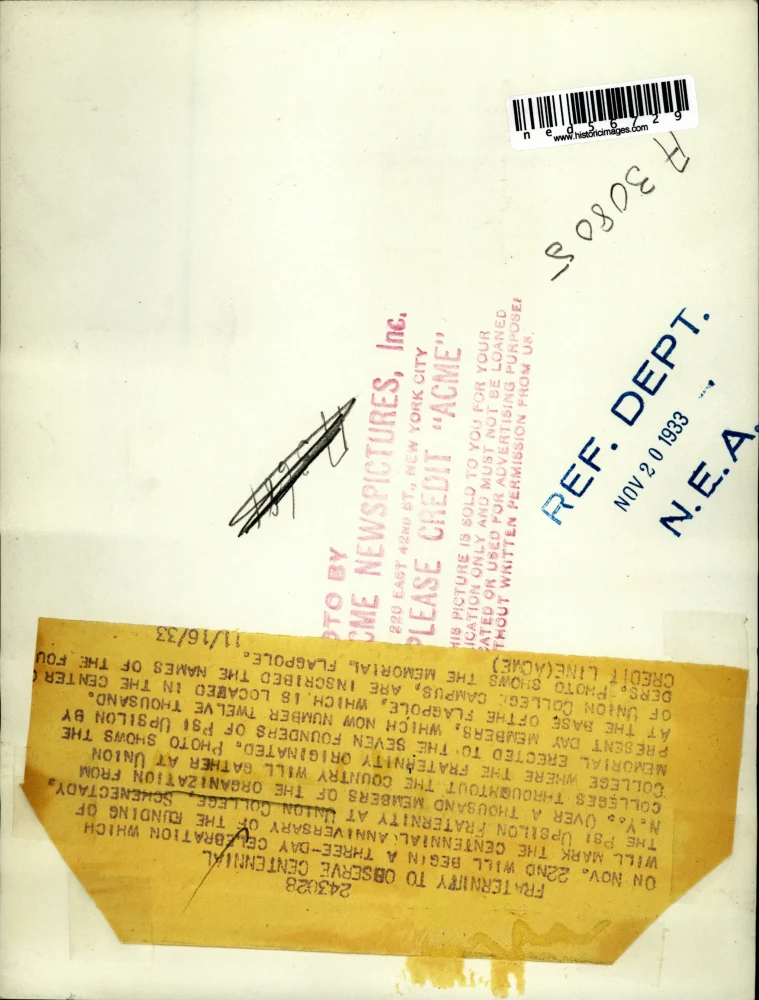 ned56729
www.historicimages.com
A 30805
REF. DEPT.
NOV 20 1933
N.E.A.
OTO BY
CME NEWSPICTURES, Inc.
220 EAST 42ND ST., NEW YORK CITY
PLEASE CREDIT "ACME"
HIS PICTURE IS SOLD TO YOU FOR YOUR
ICATION ONLY AND MUST NOT BE LOANED
CATED OR USED FOR ADVERTISING PURPOSES
THOUT WRITTEN PERMISSION FROM US.
243028
FRATERNITY TO OBSERVE CENTENNIAL
ON NOV. 22ND WILL BEGIN A THREE-DAY CELEBRATION WHICH
WILL MARK THE CENTENNIAL ANNIVERSARY OF THE FUNDING OF
THE PSI UPSILON FRATERNITY AT UNION COLLEGE, SCHENECTADY,
N.Y., OVER A THOUSAND MEMBERS OF THE ORGANIZATION FROM
COLLEGES THROUGHTOUT THE COUNTRY WILL GATHER AT UNION
COLLEGE WHERE THE FRATERNITY ORIGINATED. PHOTO SHOWS THE
MEMORIAL ERECTED TO THE SEVEN FOUNDERS OF PSI UPSILON BY
PRESENT DAY MEMBERS, WHICH NOW NUMBER TWELVE THOUSAND.
AT THE BASE OFTHE FLAGPOLE, WHICH IS LOCATED IN THE CENTER
OF UNION COLLEGE CAMPUS, ARE INSCRIBED THE NAMES OF THE FOU
DERS. PHOTO SHOWS THE MEMORIAL FLAGPOLE.
CREDIT LINE(ACME) 11/16/33